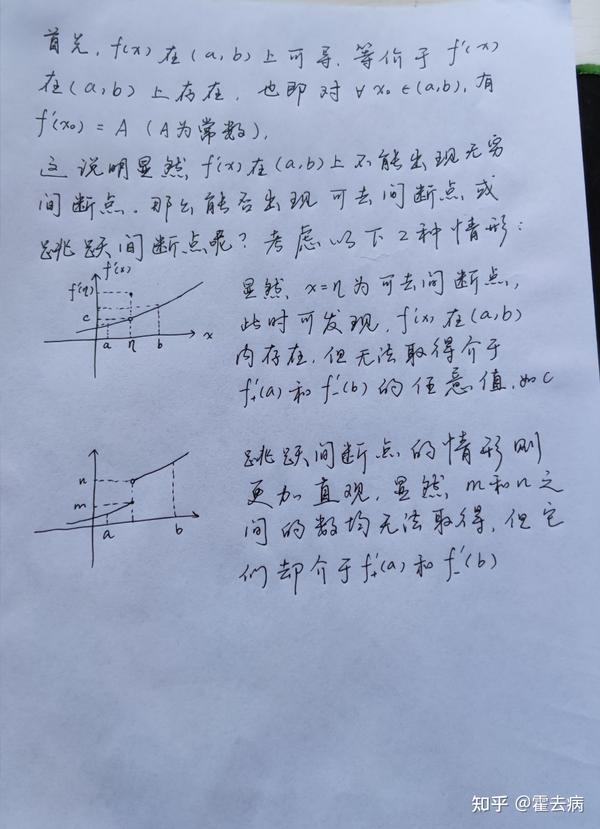 首先，f(x)在(a,b)上可导，等价于f'(x)
在(a,b)上存在，也即对∀x₀∈(a,b)，有
f'(x₀)=A (A为常数)，
这说明显然f'(x)在(a,b)上不能出现无穷
间断点。那么能否出现可去间断点或
跳跃间断点呢？考虑以下2种情形：
f'(x)
f'(η)
c
a η b x
显然，x=η为可去间断点，
此时可发现，f'(x)在(a,b)
内存在，但无法取得介于
f'₊(a)和f'₋(b)的任意值，如c
n
m
a b
跳跃间断点的情形则
更加直观，显然，m和n之
间的数均无法取得，但它
们却介于f'₊(a)和f'₋(b)
知乎 @霍去病